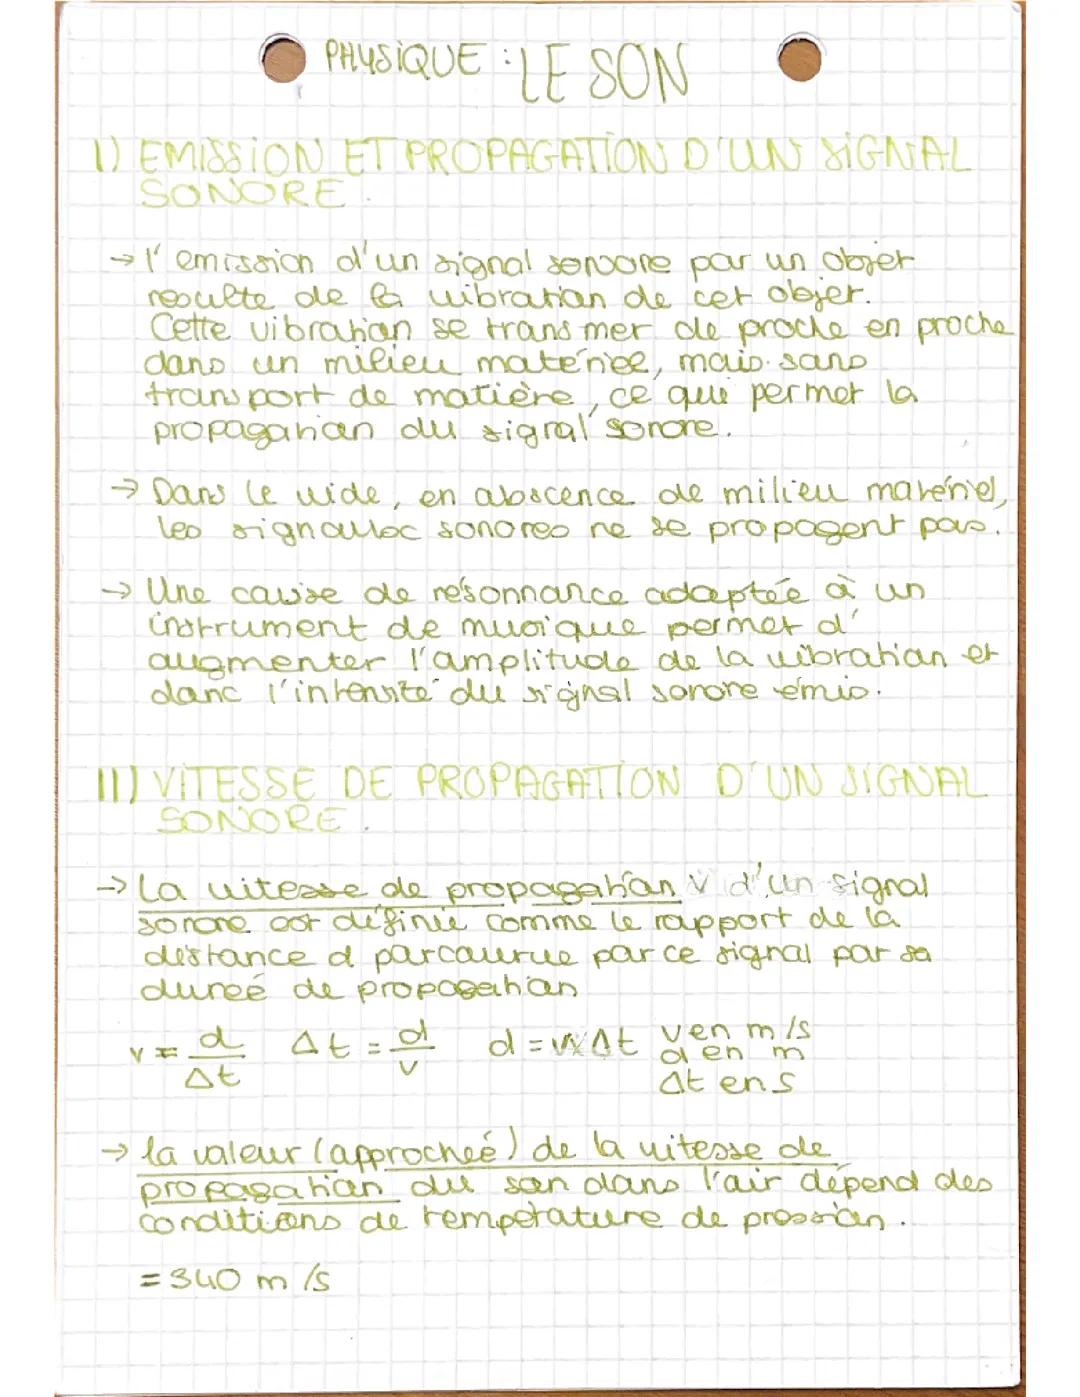 PHYSIQUE : LE SON
I) EMISSION ET PROPAGATION D'UN SIGNAL
SONORE.
→ l'emission d'un signal sonore par un objet
resulte de la vibration de cet objet.
Cette vibration se transmet de proche en proche
dans un milieu matériel, mais sans
transport de matière, ce qui permet la
propagation du signal sonore.
→ Dans le vide, en abscence de milieu matériel,
les signaux sonores ne se propagent pas.
→ Une caisse de résonnance adaptée à un
instrument de musique permet d'
augmenter l'amplitude de la vibration et
donc l'intensité du signal sonore émis.
II) VITESSE DE PROPAGATION D'UN SIGNAL
SONORE.
→ La vitesse de propagation v d'un signal
sonore est définie comme le rapport de la
distance d parcourue par ce signal par sa
dureé de propagation
v = d/Δt Δt = d/v d = v×Δt v en m/s
d en m
Δt en s
→ la valeur (approcheé) de la vitesse de
propagation du son dans l'air dépend des
conditions de température de pression.
= 340 m/s